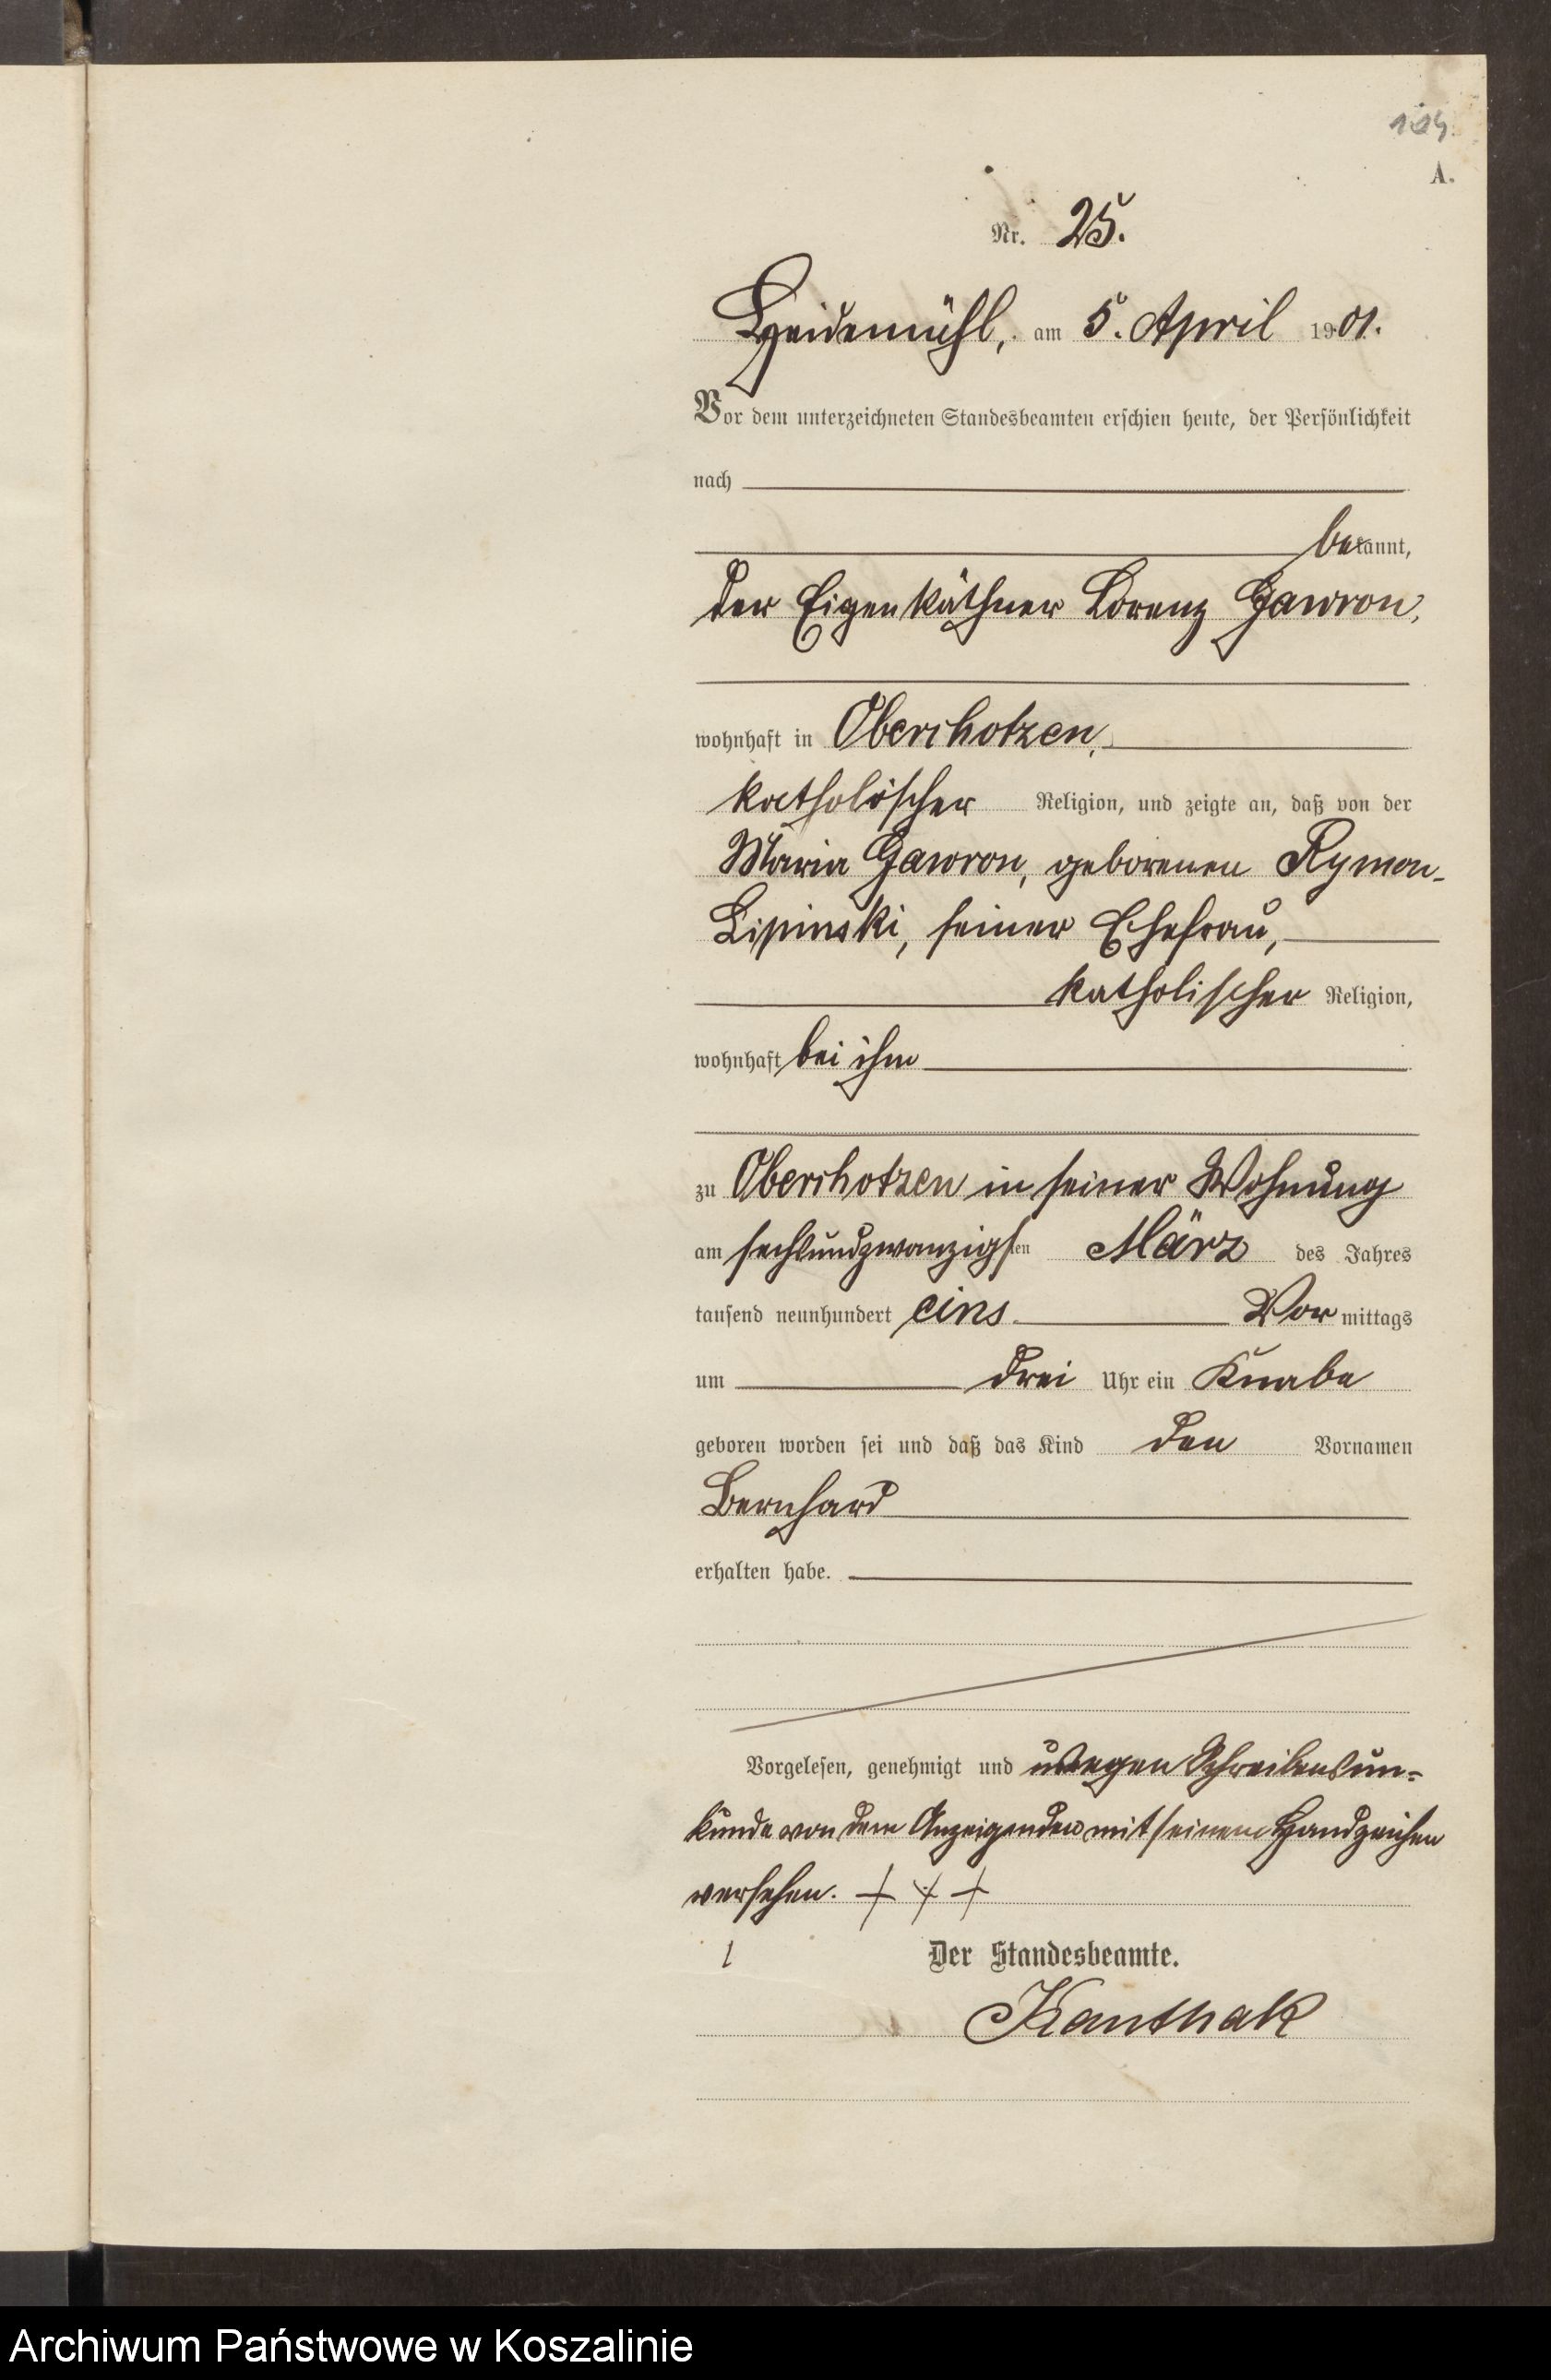 104.
A.
Nr. 25.
Heidemühl, am 5. April 1901.
Vor dem unterzeichneten Standesbeamten erschien heute, der Persönlichkeit
nach
bekannt,
der Eigenkäthner Lorenz Gawron,
wohnhaft in Oberchotzen,
katholischer Religion, und zeigte an, daß von der
Maria Gawron, geborenen Rymon-
Lipinski, seiner Ehefrau,
katholischer Religion,
wohnhaft bei ihm
zu Oberchotzen in seiner Wohnung
am sechsundzwanzigsten März des Jahres
tausend neunhundert eins Vor mittags
um drei Uhr ein Knabe
geboren worden sei und daß das Kind den Vornamen
Bernhard
erhalten habe.
Vorgelesen, genehmigt und wegen Schreibensun-
kunde von dem Anzeigenden mit seinem Handzeichen
versehen. + + +
Der Standesbeamte.
Kanthak
Archiwum Państwowe w Koszalinie